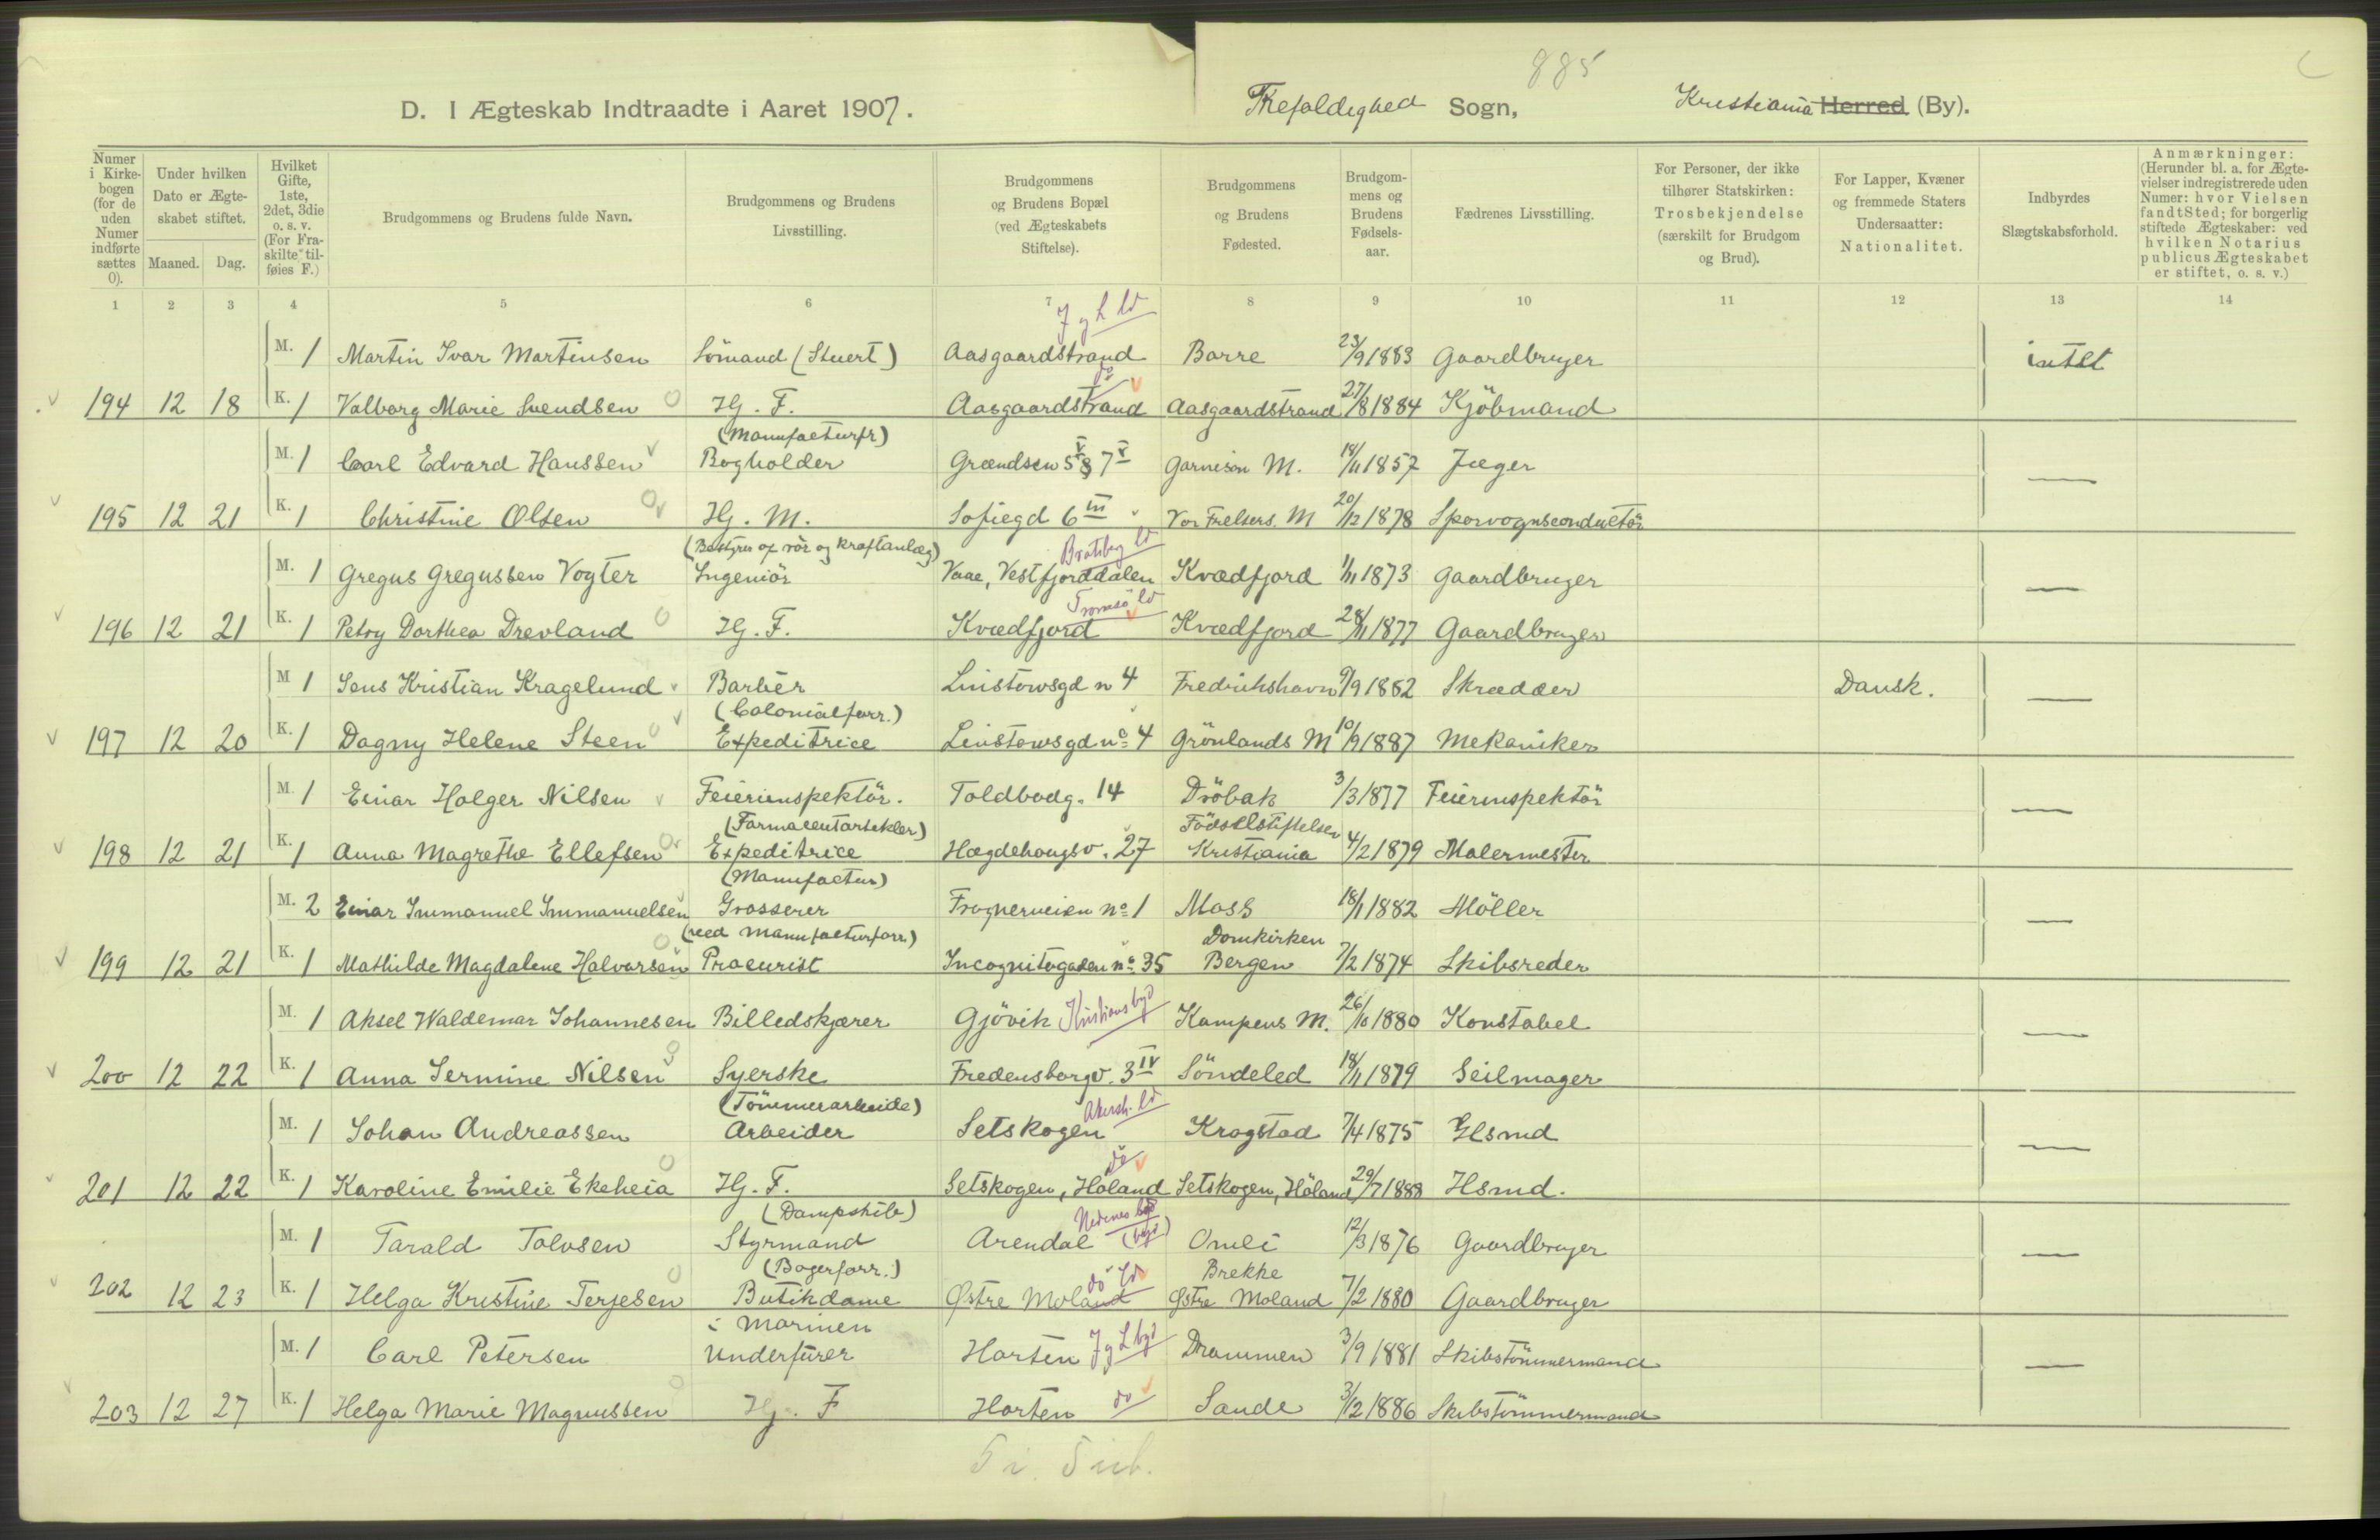 885
D. I Ægteskab Indtraadte i Aaret 1907.
Trefoldighed Sogn, Kristiania Herred (By).
Numer i Kirkebogen (for de uden Numer indførte sættes 0).
Under hvilken Dato er Ægteskabet stiftet.
Maaned. Dag.
Hvilket Gifte, 1ste, 2det, 3die o. s. v. (For Fraskilte tilføies F.)
Brudgommens og Brudens fulde Navn.
Brudgommens og Brudens Livsstilling.
Brudgommens og Brudens Bopæl (ved Ægteskabets Stiftelse).
Brudgommens og Brudens Fødested.
Brudgommens og Brudens Fødselsaar.
Fædrenes Livsstilling.
For Personer, der ikke tilhører Statskirken: Trosbekjendelse (særskilt for Brudgom og Brud).
For Lapper, Kvæner og fremmede Staters Undersaatter: Nationalitet.
Indbyrdes Slægtskabsforhold.
Anmærkninger: (Herunder bl. a. for Ægtevielser indregistrerede uden Numer: hvor Vielsen fandt Sted; for borgerlig stiftede Ægteskaber: ved hvilken Notarius publicus Ægteskabet er stiftet, o. s. v.)
1 2 3 4 5 6 7 8 9 10 11 12 13 14
J g L ld
M. 1 Martin Ivar Martinsen Sömand (Stuert) Aasgaardstrand Borre 23/9 1883 Gaardbruger intet
194 12 18 K. 1 Valborg Marie Svendsen Hj. F. Aasgaardstrand do Aasgaardstrand 27/8 1884 Kjöbmand
(Manufacturfr)
M. 1 Carl Edvard Hanssen Bogholder Grændsen 5 & 7 V Garnison M. 18/11 1857 Jæger —
195 12 21 K. 1 Christine Olsen Hj. M. Sofiegd 6 III Vor Frelsers M 20/12 1878 Sporvognsconductör
(Bestyrer af rör og kraftanlæg) Bratsberg ld
M. 1 Gregus Gregussen Vogter Ingeniör Vaae, Vestfjorddalen Kvædfjord 1/11 1873 Gaardbruger —
Tromsö ld
196 12 21 K. 1 Petry Dorthea Drevland Hj. F. Kvædfjord Kvædfjord 28/11 1877 Gaardbruger
M 1 Jens Kristian Kragelund Barbér Linstowsgd n 4 Fredrikshavn 9/9 1882 Skrædder Dansk. —
(Colonialforr.)
197 12 20 K. 1 Dagny Helene Steen Expeditrice Linstowsgd no 4 Grönlands M 10/9 1887 Mekaniker
M. 1 Einar Holger Nilsen Feierinspektör. Toldbodg. 14 Dröbak 3/3 1877 Feierinspektör —
(Farmaceutartikler) Födselstiftelsen
198 12 21 K. 1 Anna Magrethe Ellefsen Expeditrice Hægdehougsv. 27 Kristiania 4/2 1879 Malermester
(Manufactur)
M. 2 Einar Immanuel Immanuelsen Grosserer Frognerveien no 1 Moss 18/1 1882 Möller —
(ved Manufacturforr.) Domkirken
199 12 21 K. 1 Mathilde Magdalene Halvorsen Procurist Incognitogaden no 35 Bergen 7/2 1874 Skibsreder
M. 1 Aksel Waldemar Johannesen Billedskjærer Gjövik Kristians byd Kampens M. 26/10 1880 Konstabel —
200 12 22 K. 1 Anna Jermine Nilsen Syerske Fredensborgv. 3 IV Söndeled 18/11 1879 Seilmager
(Tömmerarbeide) Akersh. ld
M. 1 Johan Andreassen Arbeider Setskogen Krogstad 7/4 1875 Hsmd —
do
201 12 22 K. 1 Karoline Emilie Ekeheia Hj. F. Setskogen, Höland Setskogen, Höland 29/7 1888 Hsmd.
(Dampskib) Nedenes byd
M. 1 Tarald Tolvsen Styrmand Arendal (byd) Omli 12/3 1876 Gaardbruger —
(Bagerforr.) do ld Brekke
202 12 23 K. 1 Helga Kristine Terjesen Butikdame Østre Moland Østre Moland 7/2 1880 Gaardbruger
i Marinen
M. 1 Carl Petersen Underfürer Horten J g L byd Drammen 3/9 1881 Skibstömmermand —
203 12 27 K. 1 Helga Marie Magnussen Hj. F Horten do Sande 3/12 1886 Skibstömmermand